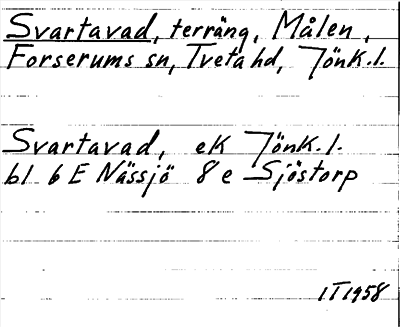 Svartavad, terräng, Målen,
Forserums sn, Tveta hd, Jönk.l.
Svartavad, ek Jönk.l.
bl 6 E Nässjö 8 e Sjöstorp
IT1958